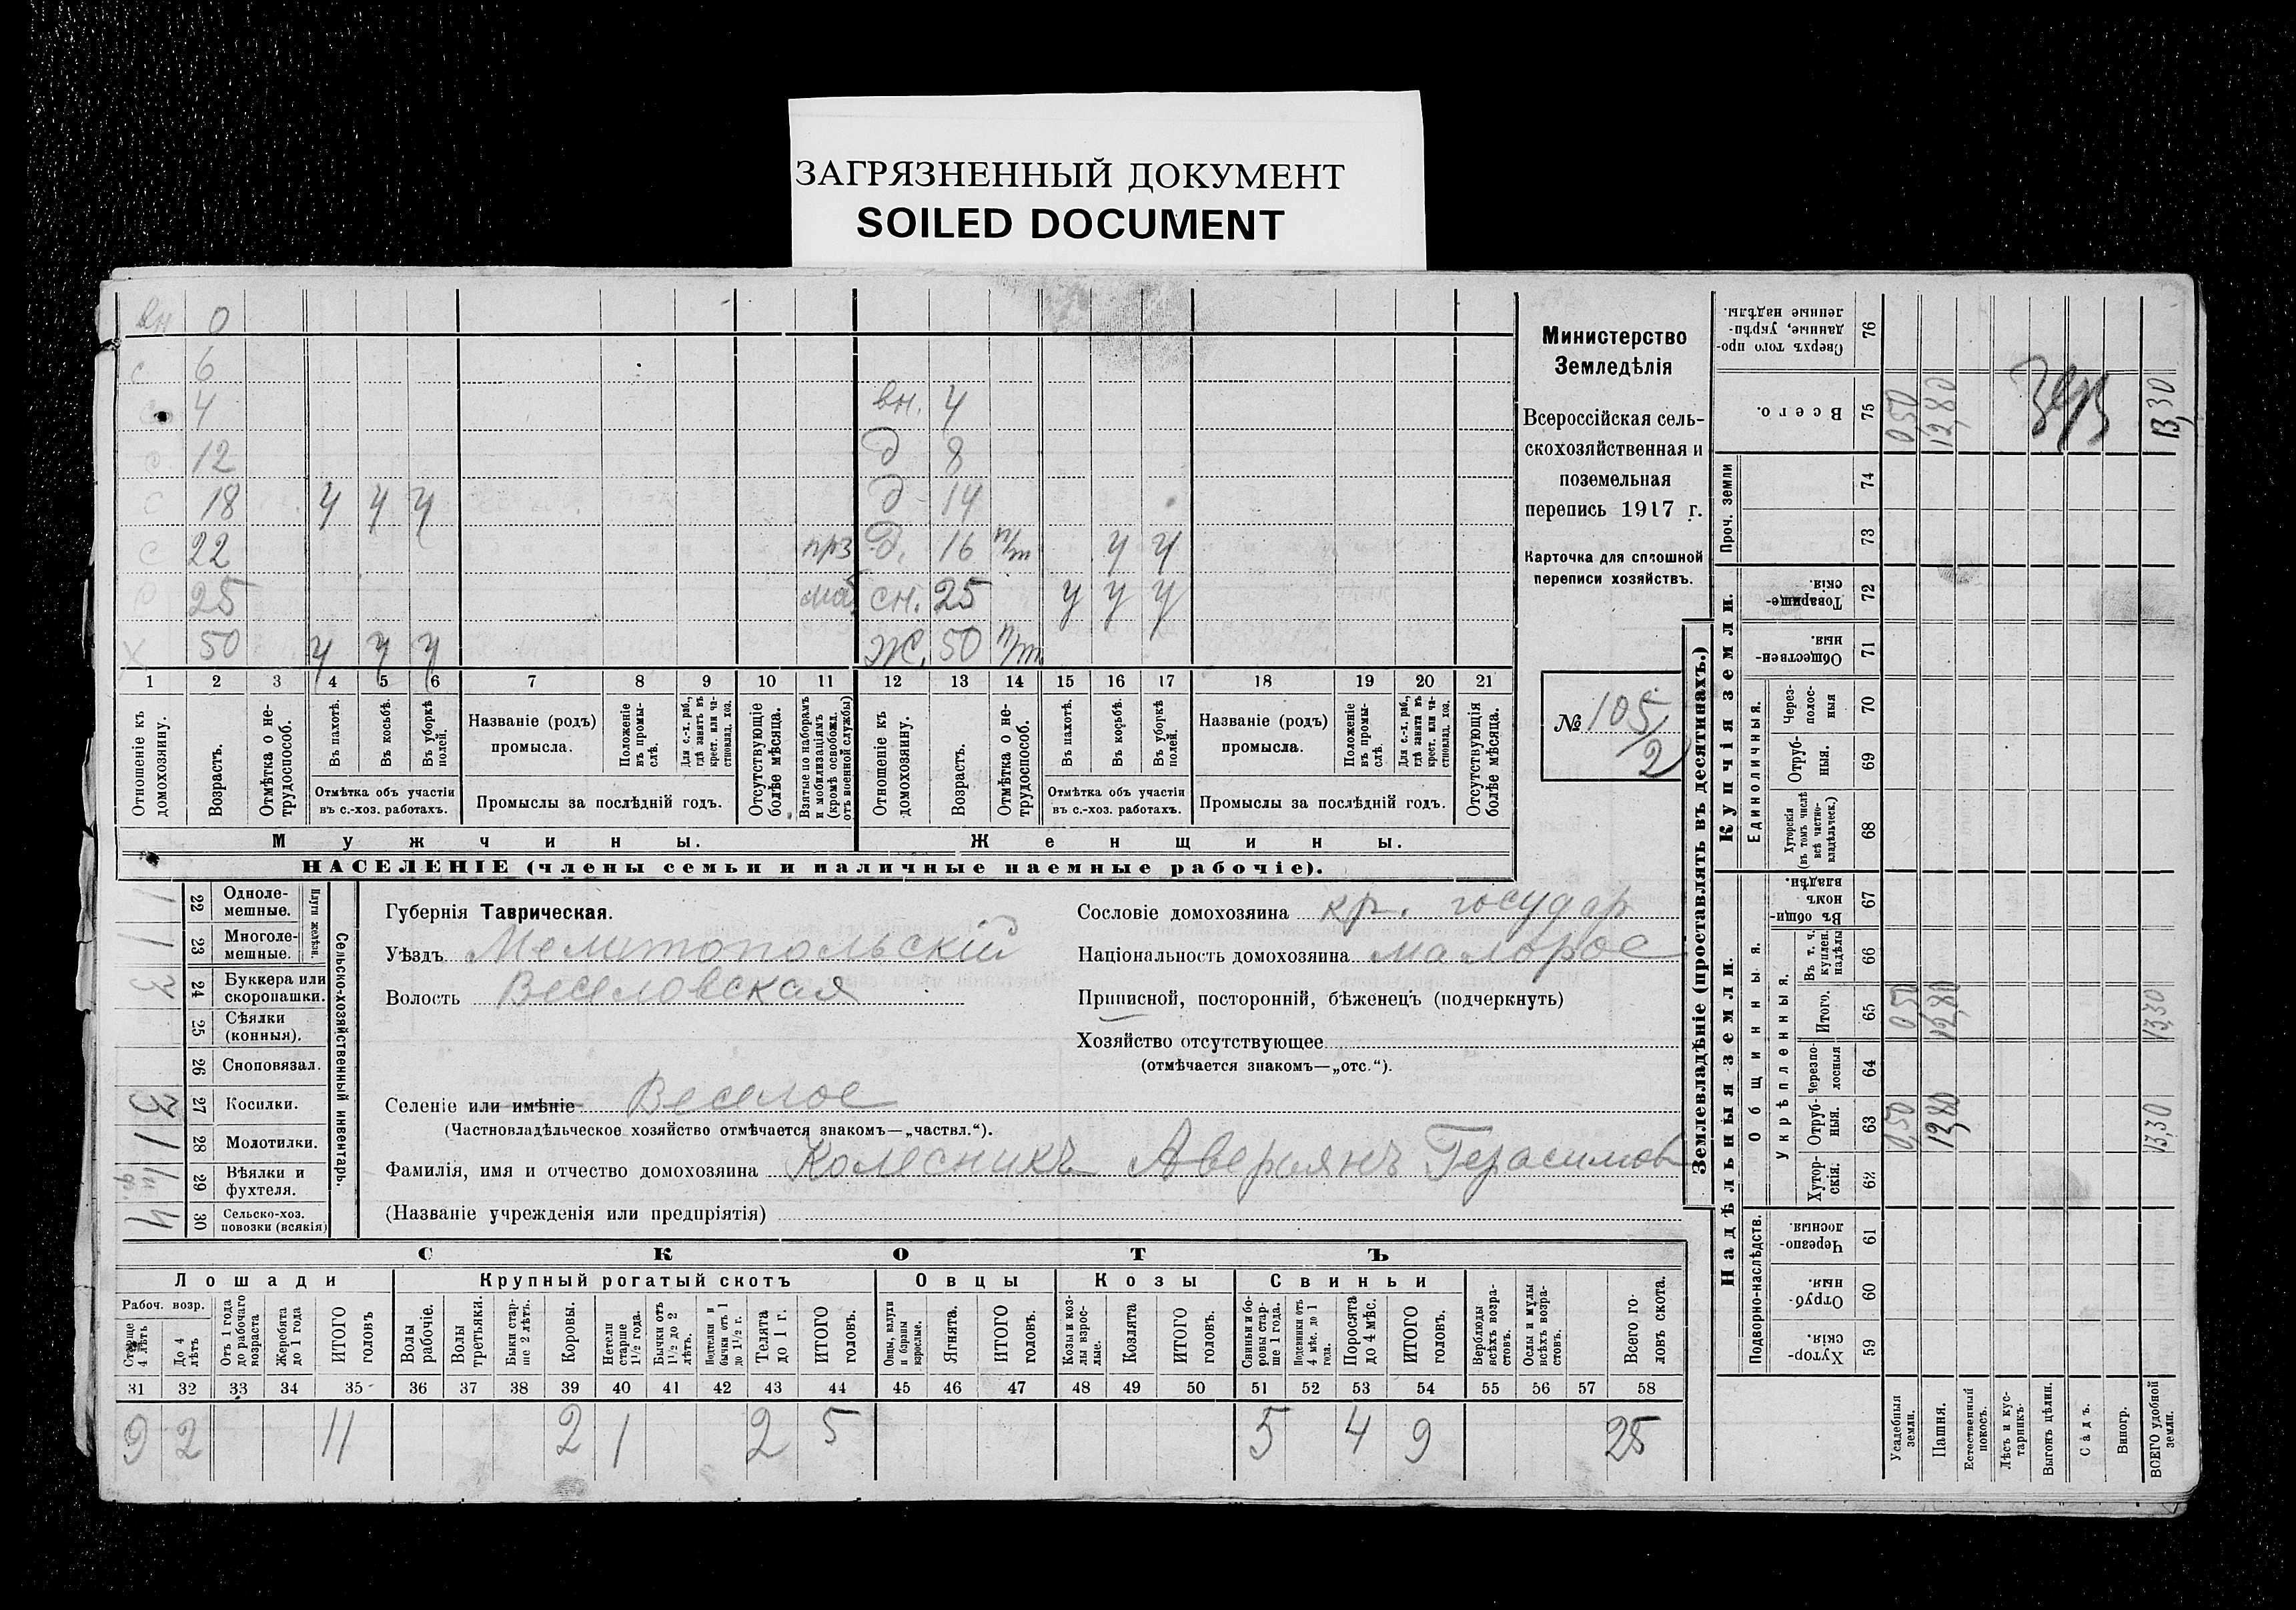 ЗАГРЯЗНЕННЫЙ ДОКУМЕНТ
SOILED DOCUMENT
вн 0
с 6
4 вн. 4
с 12 д 8
с 18 у у у д 14
с 22 прз д. 16 п/т у у
25 моб сн. 25 у у у
х 50 у у у ж. 50 п/т
1 2 3 4 5 6 7 8 9 10 11 12 13 14 15 16 17 18 19 20 21
Отношеніе къ домохозяину.
Возрастъ.
Отмѣтка о нетрудоспособ.
Въ пахотѣ.
Въ косьбѣ.
Въ уборкѣ полей.
Отмѣтка объ участіи въ с.-хоз. работахъ.
Названіе (родъ) промысла.
Положеніе въ промыслѣ.
Для с.-х. раб., гдѣ занятъ въ крест. или частновлад. хоз.
Промыслы за послѣдній годъ.
Отсутствующіе болѣе мѣсяца.
Взятые по наборамъ и мобилизаціямъ (кромѣ освобожд. отъ военной службы)
Отношеніе къ домохозяину.
Возрастъ.
Отмѣтка о нетрудоспособ.
Въ пахотѣ.
Въ косьбѣ.
Въ уборкѣ полей.
Отмѣтка объ участіи въ с.-хоз. работахъ.
Названіе (родъ) промысла.
Положеніе въ промыслѣ.
Для с.-х. раб., гдѣ занята въ крест. или частновлад. хоз.
Промыслы за послѣдній годъ.
Отсутствующія болѣе мѣсяца.
Мужчины. Женщины.
НАСЕЛЕНІЕ (члены семьи и наличные наемные рабочіе).
Министерство
Земледѣлія
Всероссійская сель-
скохозяйственная и
поземельная
перепись 1917 г.
Карточка для сплошной
переписи хозяйствъ.
№ 105/2
Сельско-хозяйственный инвентарь.
Плуги желѣзн.
22 Одноле-мешные. 1
23 Многоле-мешные. 1
24 Буккера или скоропашки. 3
25 Сѣялки (конныя).
26 Сноповязал.
27 Косилки. 3
28 Молотилки. 1
29 Вѣялки и фухтеля.
30 Сельско-хоз. повозки (всякія) 4
Губернія Таврическая.
Уѣздъ Мелитопольскій
Волость Веселовская
Селеніе или имѣніе Веселое
(Частновладѣльческое хозяйство отмѣчается знакомъ—„частвл.“).
Фамилія, имя и отчество домохозяина Колесникъ Аверьянъ Герасимов
(Названіе учрежденія или предпріятія)
Сословіе домохозяина кр. государ
Національность домохозяина малорос
Приписной, посторонній, бѣженецъ (подчеркнуть)
Хозяйство отсутствующее
(отмѣчается знакомъ—„отс.“).
СКОТЪ
Лошади Крупный рогатый скотъ Овцы Козы Свиньи
Рабоч. возр.
Старше 4 лѣтъ
До 4 лѣтъ
Отъ 1 года до рабочаго возраста
Жеребята до 1 года
ИТОГО головъ
Волы рабочіе.
Волы третьяки.
Быки старше 2 лѣтъ.
Коровы.
Нетели старше 1½ года.
Бычки отъ 1½ до 2 лѣтъ.
Подтелки и бычки отъ 1 до 1½ г.
Телята до 1 г.
ИТОГО головъ.
Овцы, валухи и бараны взрослые.
Ягнята.
ИТОГО головъ.
Козы и козлы взрослые.
Козлята
ИТОГО головъ.
Свиньи и боровы старше 1 года.
Подсвинки отъ 4 мѣс. до 1 года.
Поросята до 4 мѣс.
ИТОГО головъ.
Верблюды всѣхъ возрастовъ.
Ослы и мулы всѣхъ возрастовъ.
Всего головъ скота.
31 32 33 34 35 36 37 38 39 40 41 42 43 44 45 46 47 48 49 50 51 52 53 54 55 56 57 58
9 2 11 2 1 2 5 5 4 9 25
Землевладѣніе (проставлять въ десятинахъ.)
Надѣльныя земли. Купчія земли.
Подворно-наслѣдств.
59 Хутор-скія.
60 Отруб-ныя.
61 Черезпо-лосныя.
Общинныя.
Укрѣпленныя.
62 Хутор-скія.
63 Отруб-ныя. 0,50 13,30
64 Черезпо-лосныя
65 Итого. 0,50 12,80 13,30
66 Въ т. ч. куплен. надѣлы
67 Въ общи-номъ владѣн.
Единоличныя.
68 Хуторскія (въ томъ числѣ всѣ частно-владѣльческ.)
69 Отруб-ныя.
70 Через-полос-ныя
71 Обществен-ныя.
72 Товарище-скія.
Проч. земли
73
74
75 Всего. 0,50 12,80 13,30
76 Сверхъ того про-данные, укрѣп-ленные надѣлы.
Усадебныя земли.
Пашня.
Естественный покосъ.
Лѣсъ и кус-тарникъ.
Выгонъ цѣлин.
Садъ.
Виногр.
ВСЕГО удобной земли.